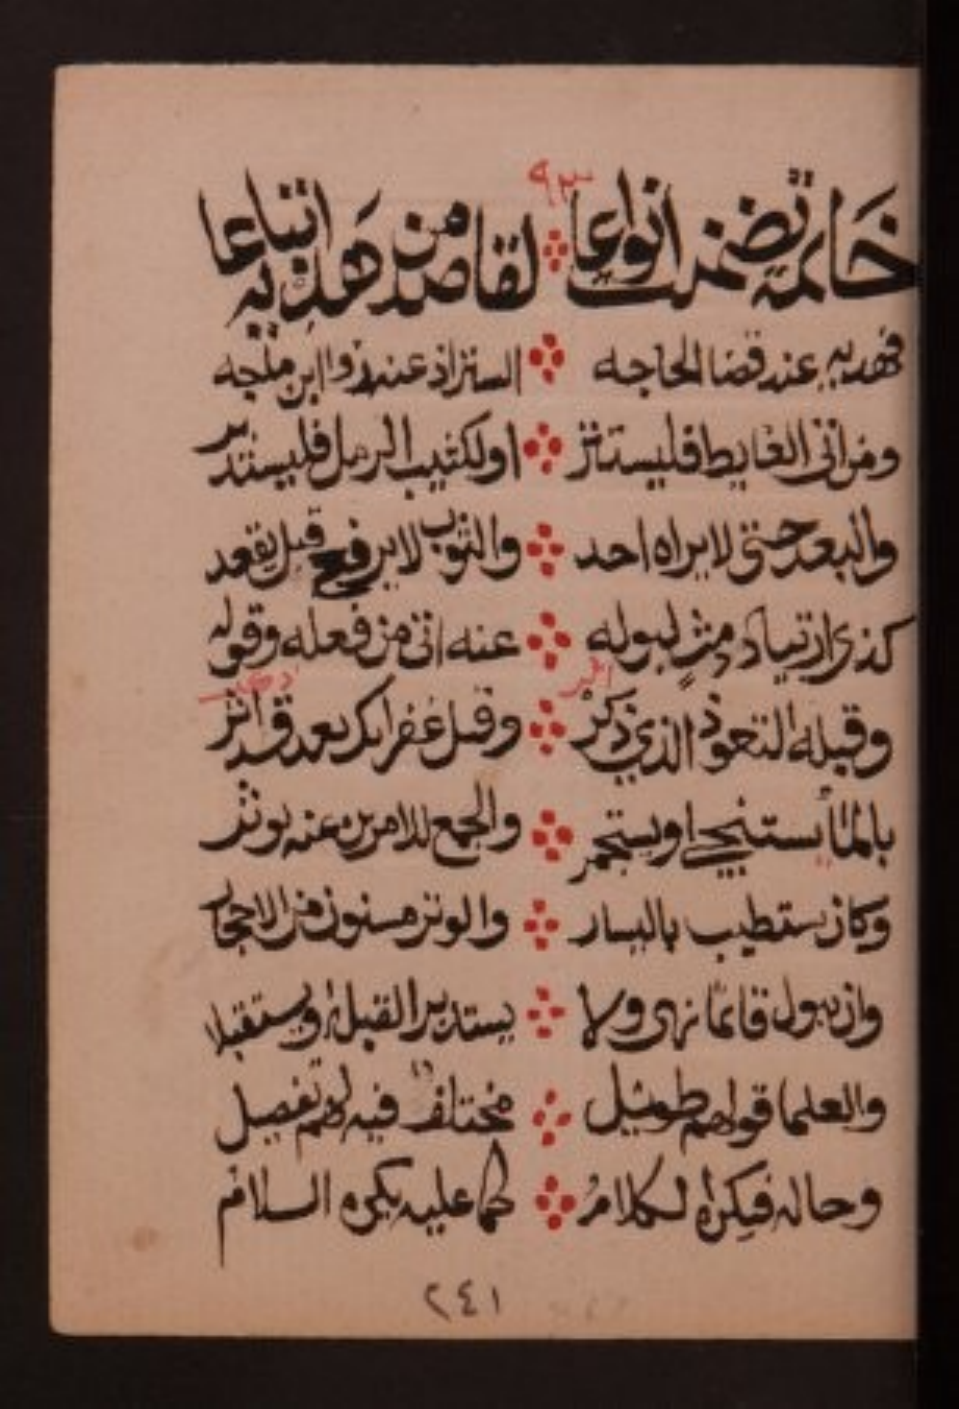 ٩٣
خاتمة تضمنت انواعا لقاصد من هديه اتباعا
فهديه عند قضا الحاجه الستر اذ عنه روا ابن ماجه
ومن اتى الغايط فليستتر او لكثيب الرمل فليستدبر
والبعد حتى لا يراه احد والثوب لا يرفع قبل يقعد
كذى ارتياد دمث لبوله عنه اتى من فعله وقوله
وقبله التعوذ الذي ذكر وقبل غفرانك بعد قد اثر
بالمآ يستنجي او يستجمر والجمع للامرين عنه يوثر
وكان يستطيب باليسار والوتر مسنون من الاحجار
وان يبول قائما نهى ولا يستدبر القبله او يستقبلا
والعلما قولهم طويل مختلف فيه لهم تفصيل
وحاله فيكره الكلام كما عليه يكره السلام
٢٤١